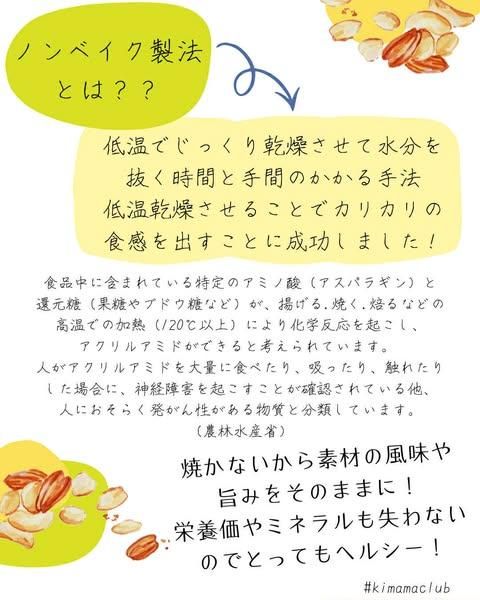 ノンベイク製法
とは？？
低温でじっくり乾燥させて水分を
抜く時間と手間のかかる手法
低温乾燥させることでカリカリの
食感を出すことに成功しました！
食品中に含まれている特定のアミノ酸（アスパラギン）と
還元糖（果糖やブドウ糖など）が、揚げる.焼く.焙るなどの
高温での加熱（120℃以上）により化学反応を起こし、
アクリルアミドができると考えられています。
人がアクリルアミドを大量に食べたり、吸ったり、触れたり
した場合に、神経障害を起こすことが確認されている他、
人におそらく発がん性がある物質と分類しています。
（農林水産省）
焼かないから素材の風味や
旨みをそのままに！
栄養価やミネラルも失わない
のでとってもヘルシー！
#kimamaclub